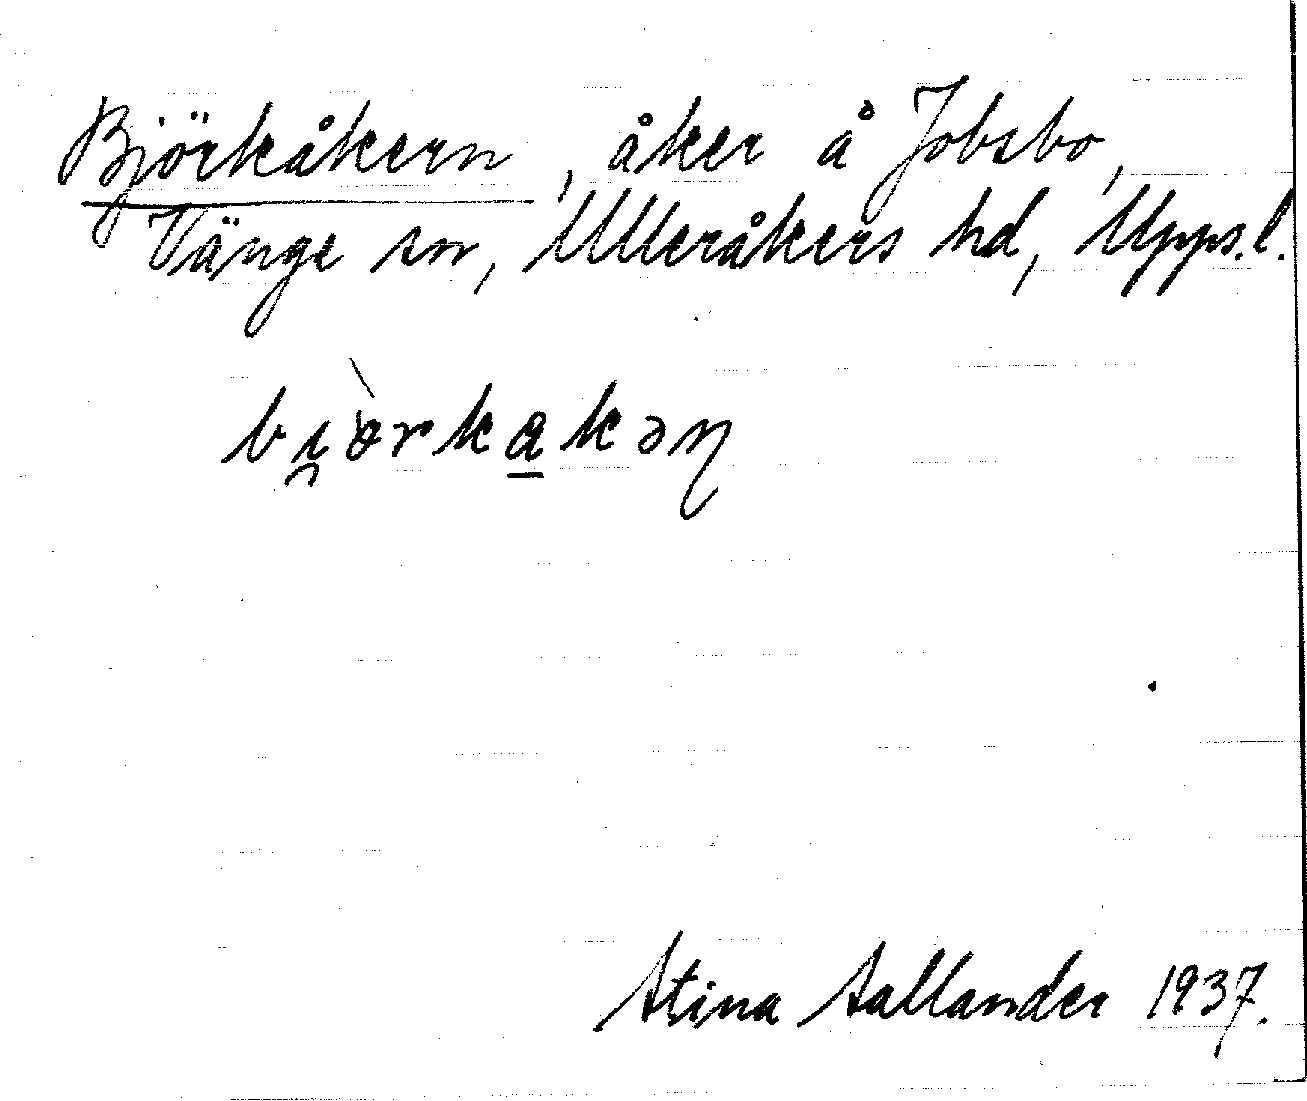 Björkåkern, åker å Jobsbo,
Vänge sn, Ulleråkers hd, Upps.l.
bi̯ö̀rka̲kəɳ
Stina Sallander 1937.